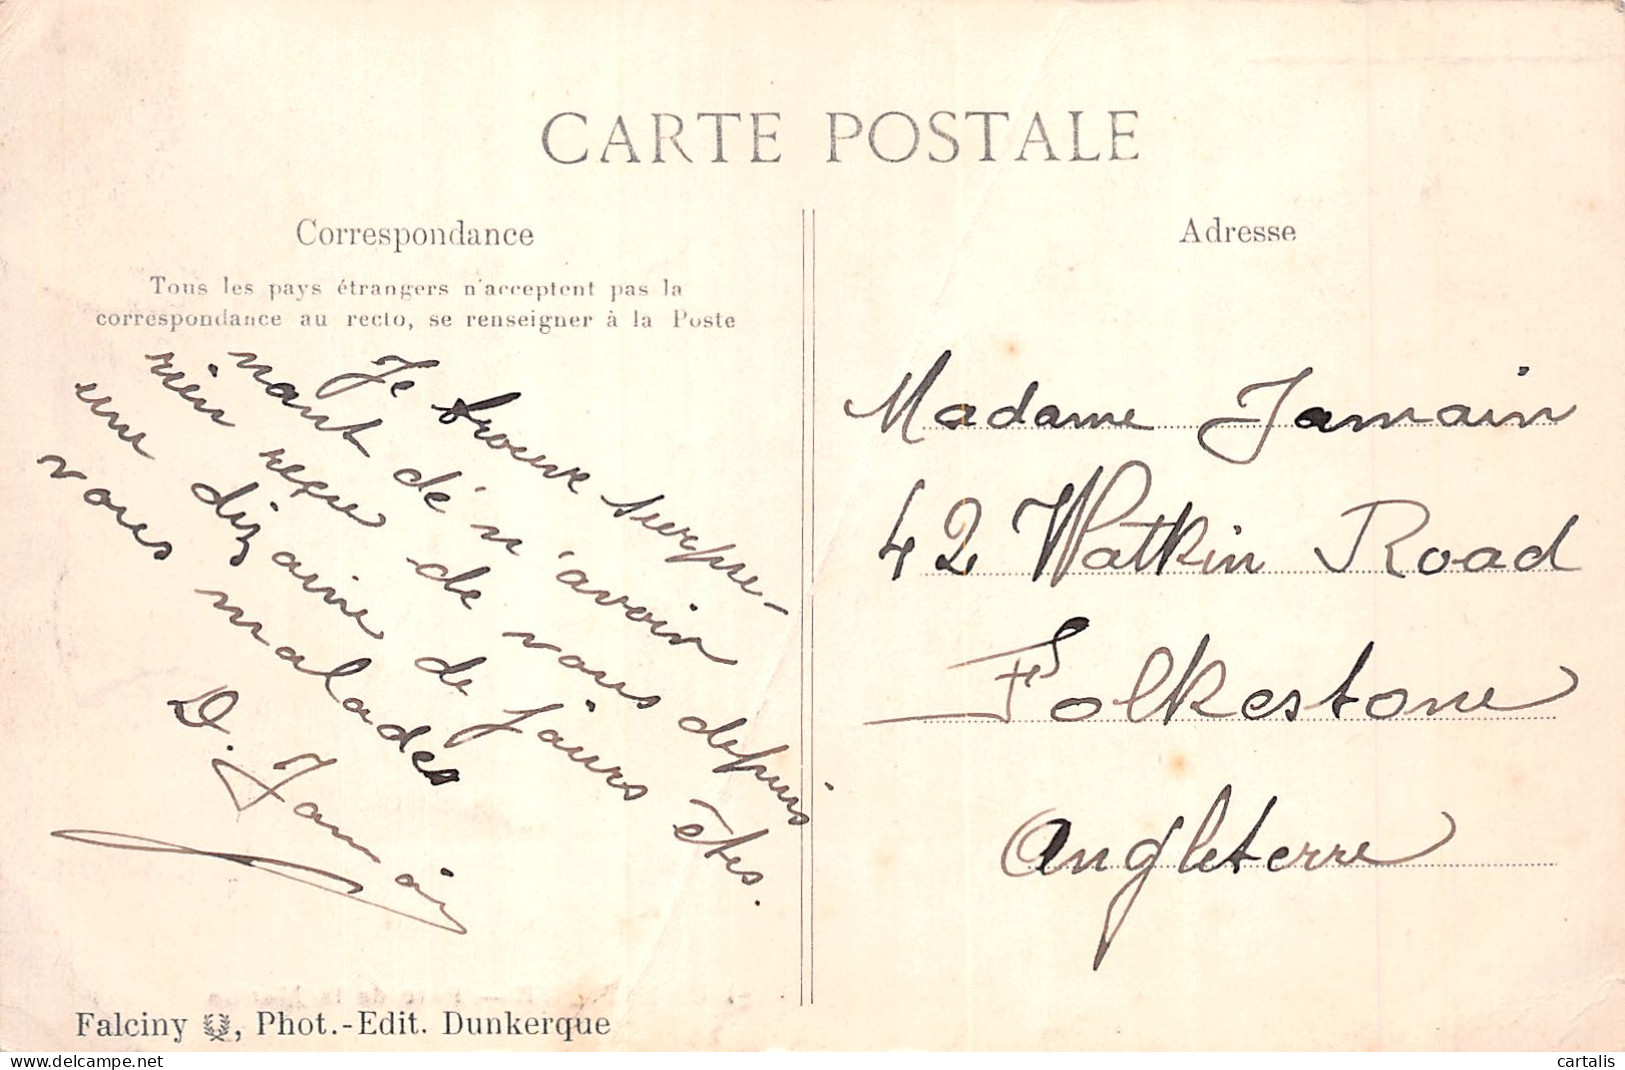 CARTE POSTALE
Correspondance
Tous les pays étrangers n'acceptent pas la
correspondance au recto, se renseigner à la Poste
Je trouve surpre-
nant de n'avoir
rien reçu de vous depuis
une dizaine de jours êtes.
vous malades
D. Jamain
Adresse
Madame Jamain
42 Watkin Road
Folkestone
Angleterre
Falciny, Phot.-Edit. Dunkerque
delcampe.net
cartalis